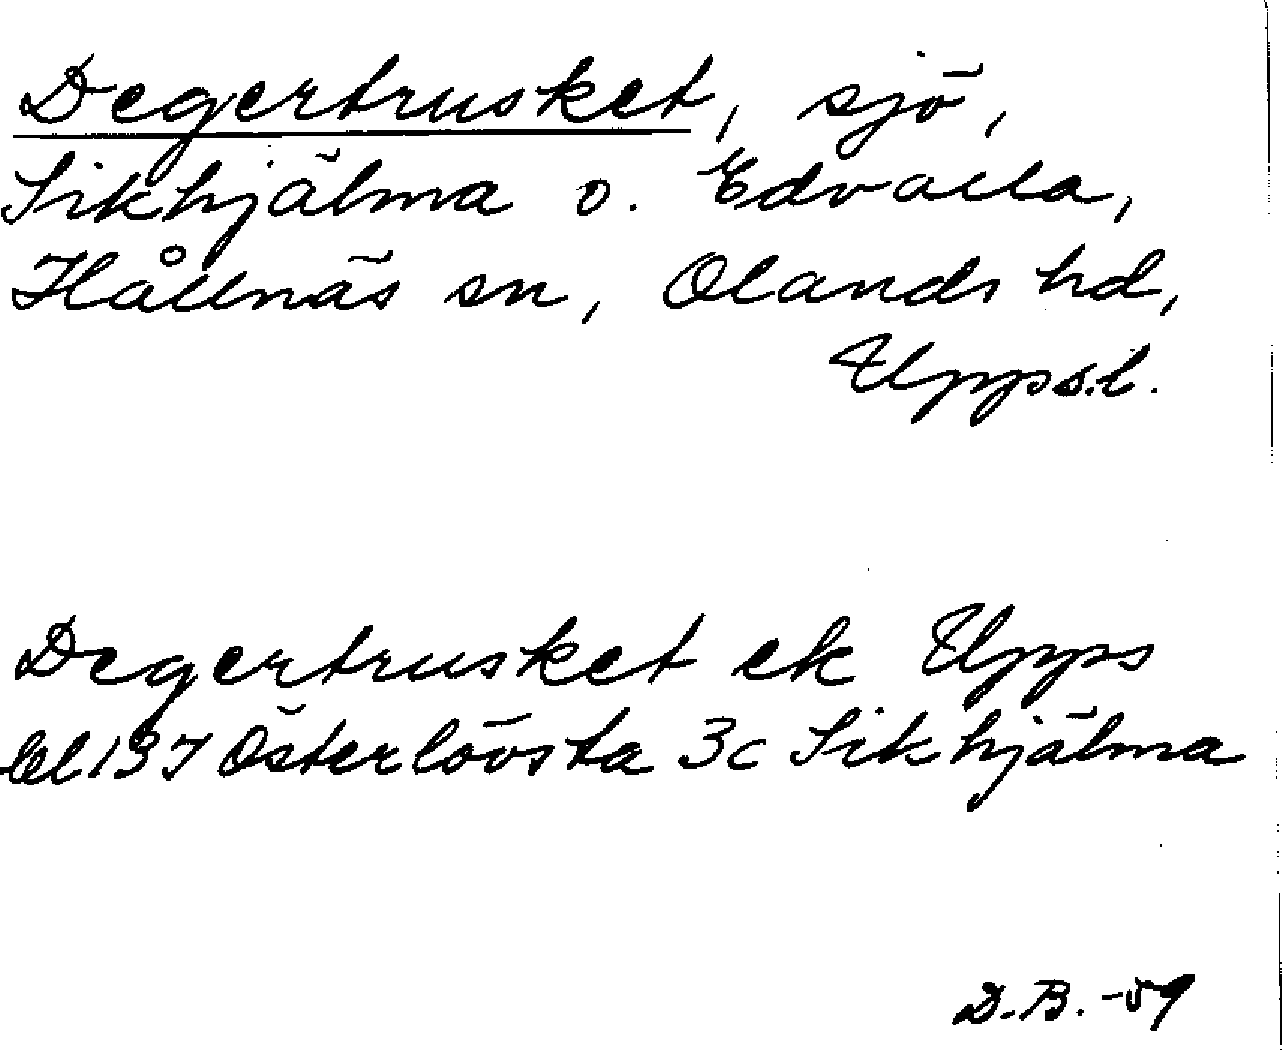 Degertrusket, sjö,
Sikhjälma o. Edvalla,
Hållnäs sn, Olands hd,
Upps.l.
Degertrusket ek Upps
137 Österlövsta 3c Sikhjälma
D.B. -59